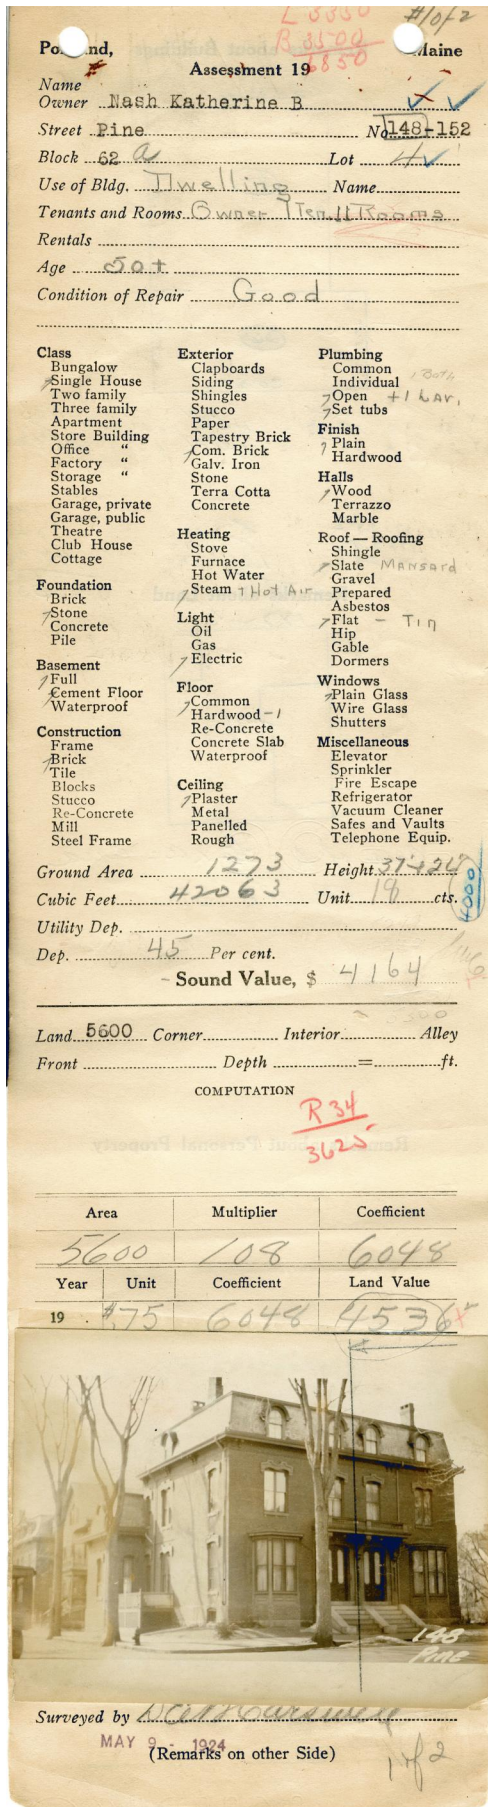 L 3350 #1 of 2
B 3500
6850
Portland, Maine
Assessment 19
Name
Owner Nash Katherine B
Street Pine No 148-152
Block 62 a Lot 4
Use of Bldg. Dwelling Name
Tenants and Rooms Owner Ten 11 Rooms
Rentals
Age 50+
Condition of Repair Good
Class
Bungalow
Single House
Two family
Three family
Apartment
Store Building
Office "
Factory "
Storage "
Stables
Garage, private
Garage, public
Theatre
Club House
Cottage
Foundation
Brick
Stone
Concrete
Pile
Basement
Full
Cement Floor
Waterproof
Construction
Frame
Brick
Tile
Blocks
Stucco
Re-Concrete
Mill
Steel Frame
Exterior
Clapboards
Siding
Shingles
Stucco
Paper
Tapestry Brick
Com. Brick
Galv. Iron
Stone
Terra Cotta
Concrete
Heating
Stove
Furnace
Hot Water
Steam + Hot Air
Light
Oil
Gas
Electric
Floor
Common
Hardwood - 1
Re-Concrete
Concrete Slab
Waterproof
Ceiling
Plaster
Metal
Panelled
Rough
Plumbing
Common 1 Bath
Individual
Open + 1 Lav.
Set tubs
Finish
Plain
Hardwood
Halls
Wood
Terrazzo
Marble
Roof — Roofing
Shingle
Slate Mansard
Gravel
Prepared
Asbestos
Flat - Tin
Hip
Gable
Dormers
Windows
Plain Glass
Wire Glass
Shutters
Miscellaneous
Elevator
Sprinkler
Fire Escape
Refrigerator
Vacuum Cleaner
Safes and Vaults
Telephone Equip.
Ground Area 1273 Height 37+24
Cubic Feet 42063 Unit 18 cts.
4000
Utility Dep.
Dep. 45 Per cent.
Sound Value, $ 4164
Land 5600 Corner Interior Alley
Front Depth = ft.
COMPUTATION
R 34
3625
Area Multiplier Coefficient
5600 108 6048
Year Unit Coefficient Land Value
19 $.75 6048 4536
148
Pine
Surveyed by
MAY 9 - 1924
(Remarks on other Side)
1 of 2